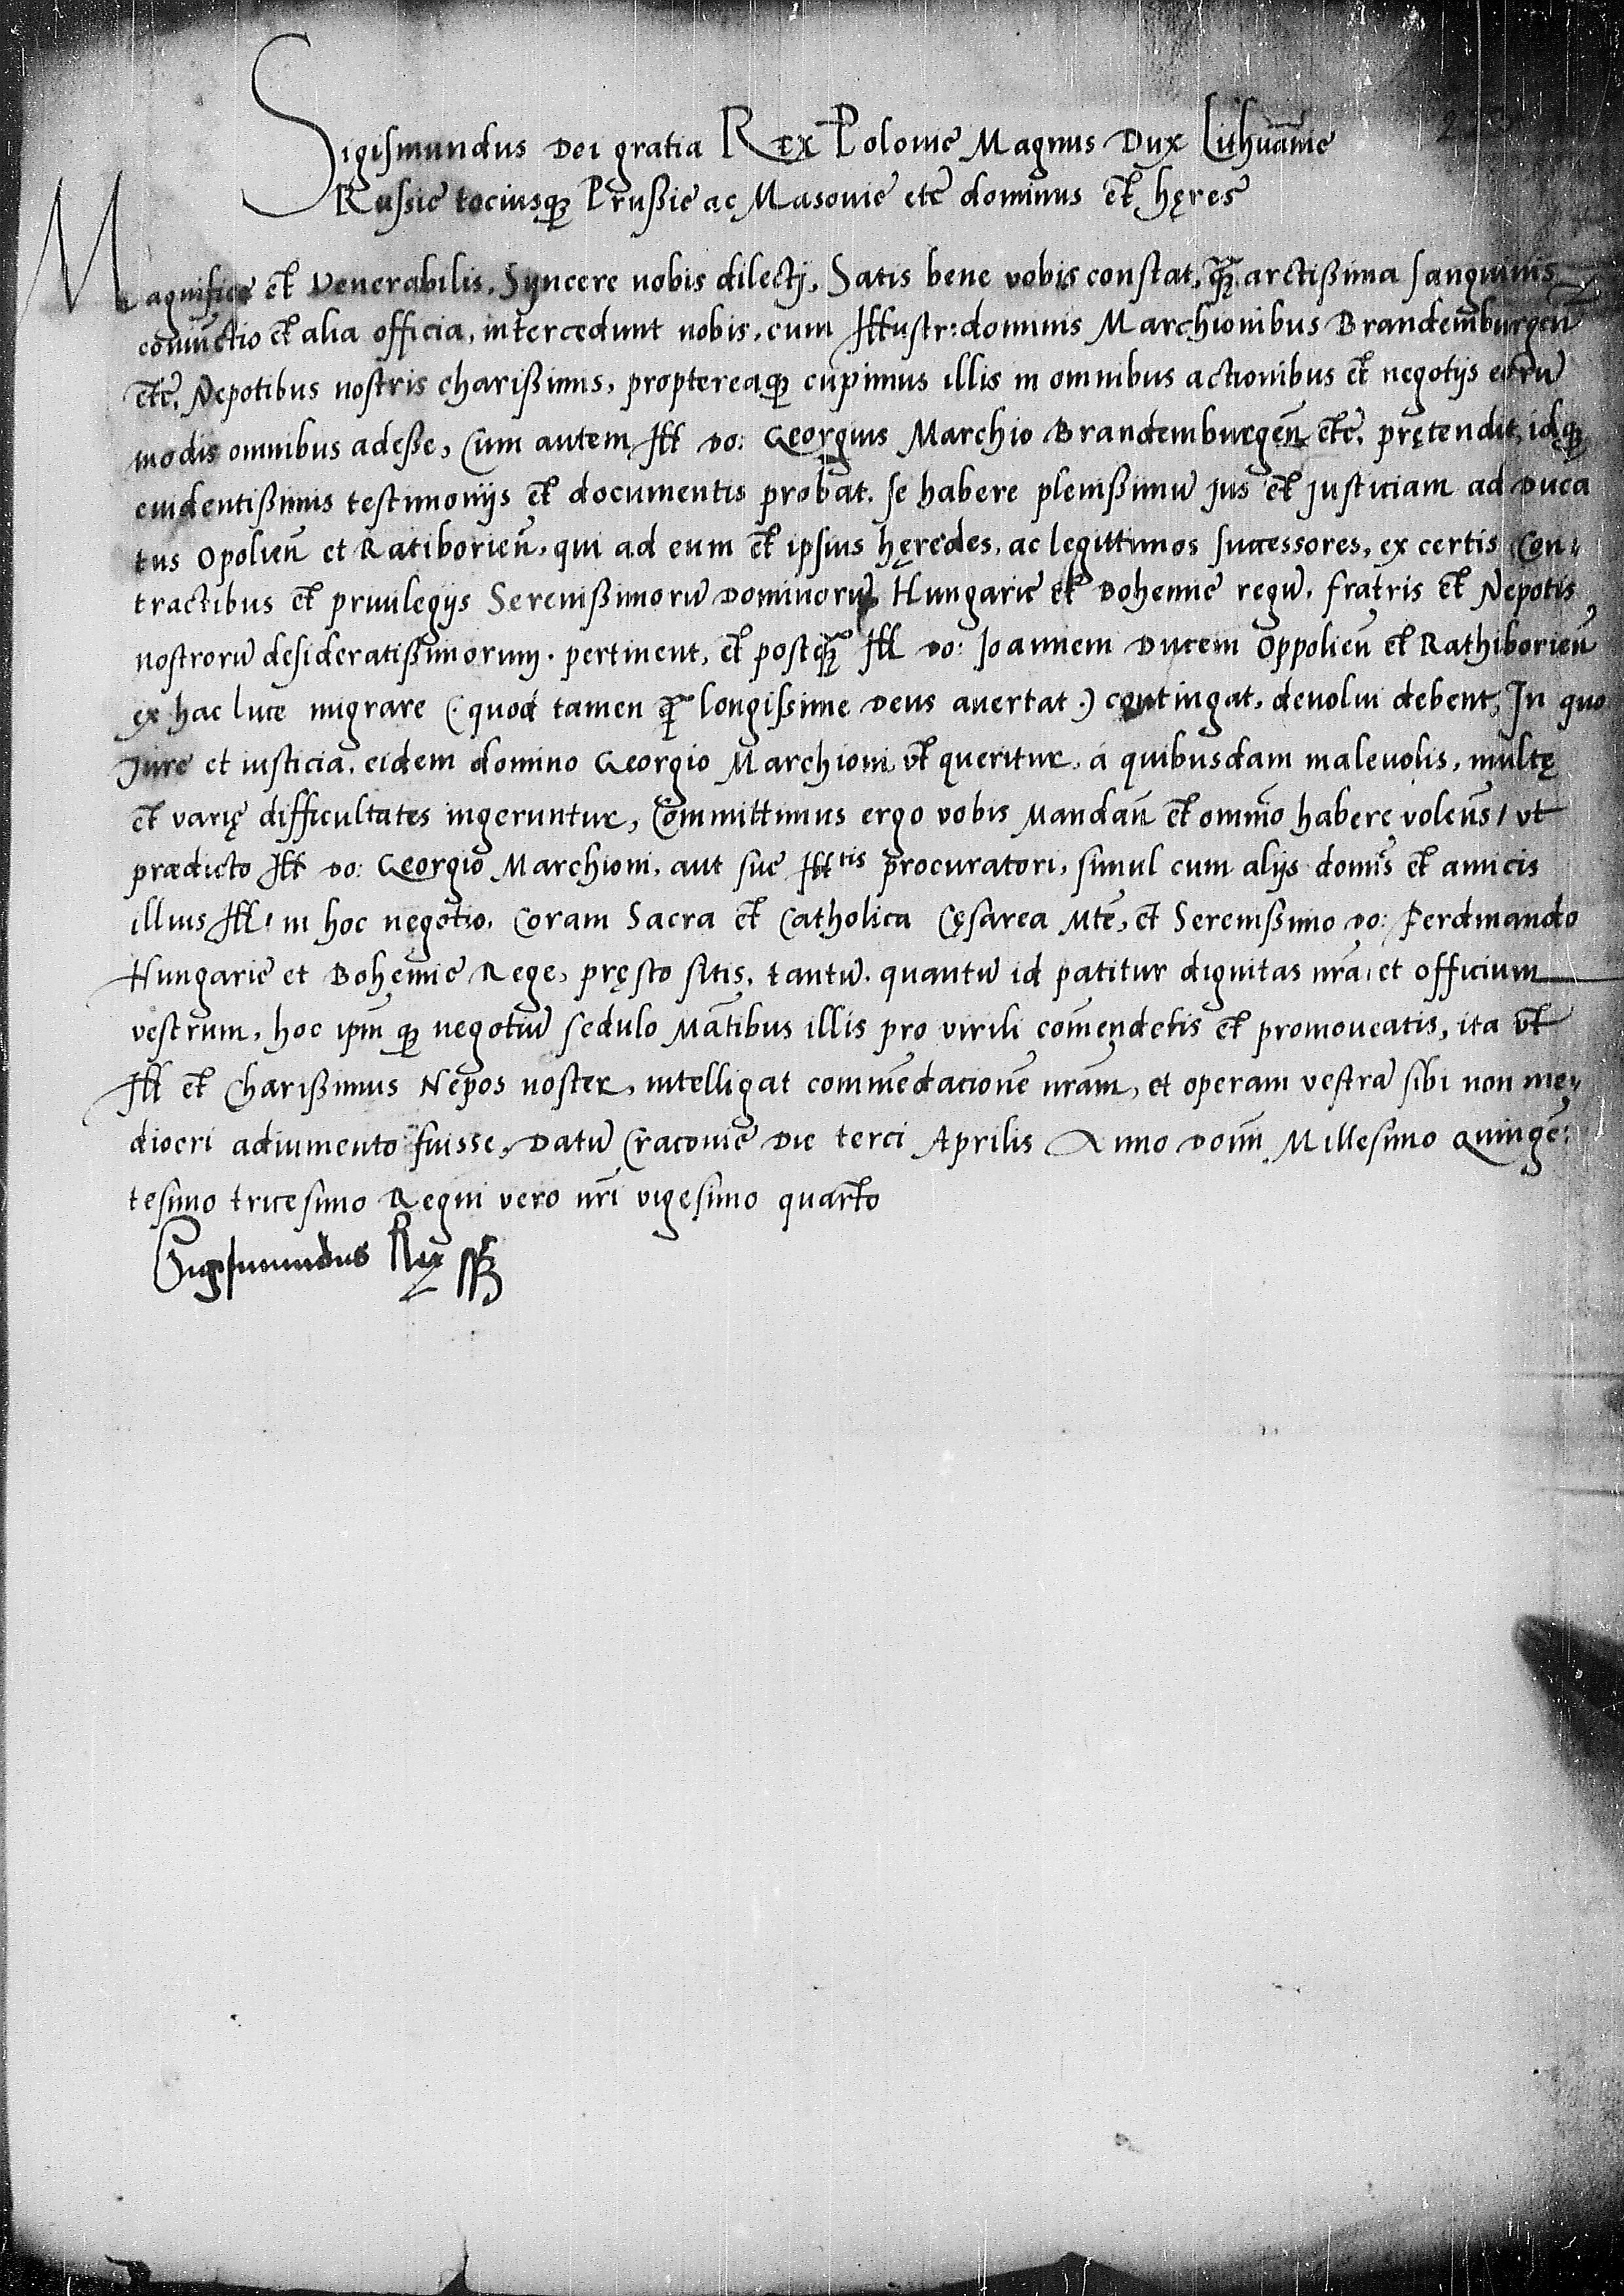 Sigismundus Dei gratia Rex Polonie Magnus Dux Lithuanie
Russie tociusq₃ Prussie ac Masovie etc̄ dominus et hęres
Magnifice et Venerabilis, Syncere nobis dilectj, Satis bene vobis constat, q₃ arctißima sanguinis
coniunctio et alia officia, intercedunt nobis, cum Illustr: dominis Marchionibus Brandemburgen̄
etc̄. Nepotibus nostris charißimis, proptereaq₃ cupimus illis in omnibus actionibus et negotijs eorū
modis omnibus adesse, Cum autem Ill Do: Georgius Marchio Brandemburgen̄ etc̄. prętendit, idq₃
euidentißimis testimonijs et documentis probat, se habere plenißimū jus et justiciam ad Duca
tus Opolien̄ et Ratiborien̄, qui ad eum et ipsius hęredes, ac legittimos successores, ex certis Con„
tractibus et priuilegijs Serenißimorū Dominorū Hungarie et Bohemie regū, fratris et Nepotis
nostrorū desideratissimorum, pertinent, et postq₃ Ill Do: Joannem Ducem Oppolien̄ et Rathiborien̄
ex hac luce migrare (. quod tamen q̄ longissime Deus auertat .) contingat, deuolui debent, In quo
Jure et iusticia, eidem domino Georgio Marchioni vt queritur, á quibusdam maleuolis, multę
et varię difficultates ingeruntur, Committimus ergo vobis Mandan̄ et omnīo habere volen̄s / vt
prædicto Ill Do: Georgio Marchioni, aut sue Ill^tis procuratori, simul cum alijs domīs et amicis
illius Ill: in hoc negotio, Coram Sacra et Catholica Cęsarea Mte̅, et Serenißimo Do: Ferdinando
Hungarie et Bohemie Rege, pręsto sitis, tantū, quantū id patitur dignitas nr̄a, et officium
vestrum, hoc ipm̄ q₃ negotiū sedulo Mātibus illis pro virili com̄endetis et promoueatis, ita vt
Ill et Charißimus Nepos noster, intelligat commēdacionē nr̄am, et operam vestrā sibi non me„
diocri adiumento fuisse, Datū Cracovie Die terci Aprilis Anno Domī Millesimo Quinge„
tesimo tricesimo Regni vero nr̄i vigesimo quarto
Sigismundus Rex sst